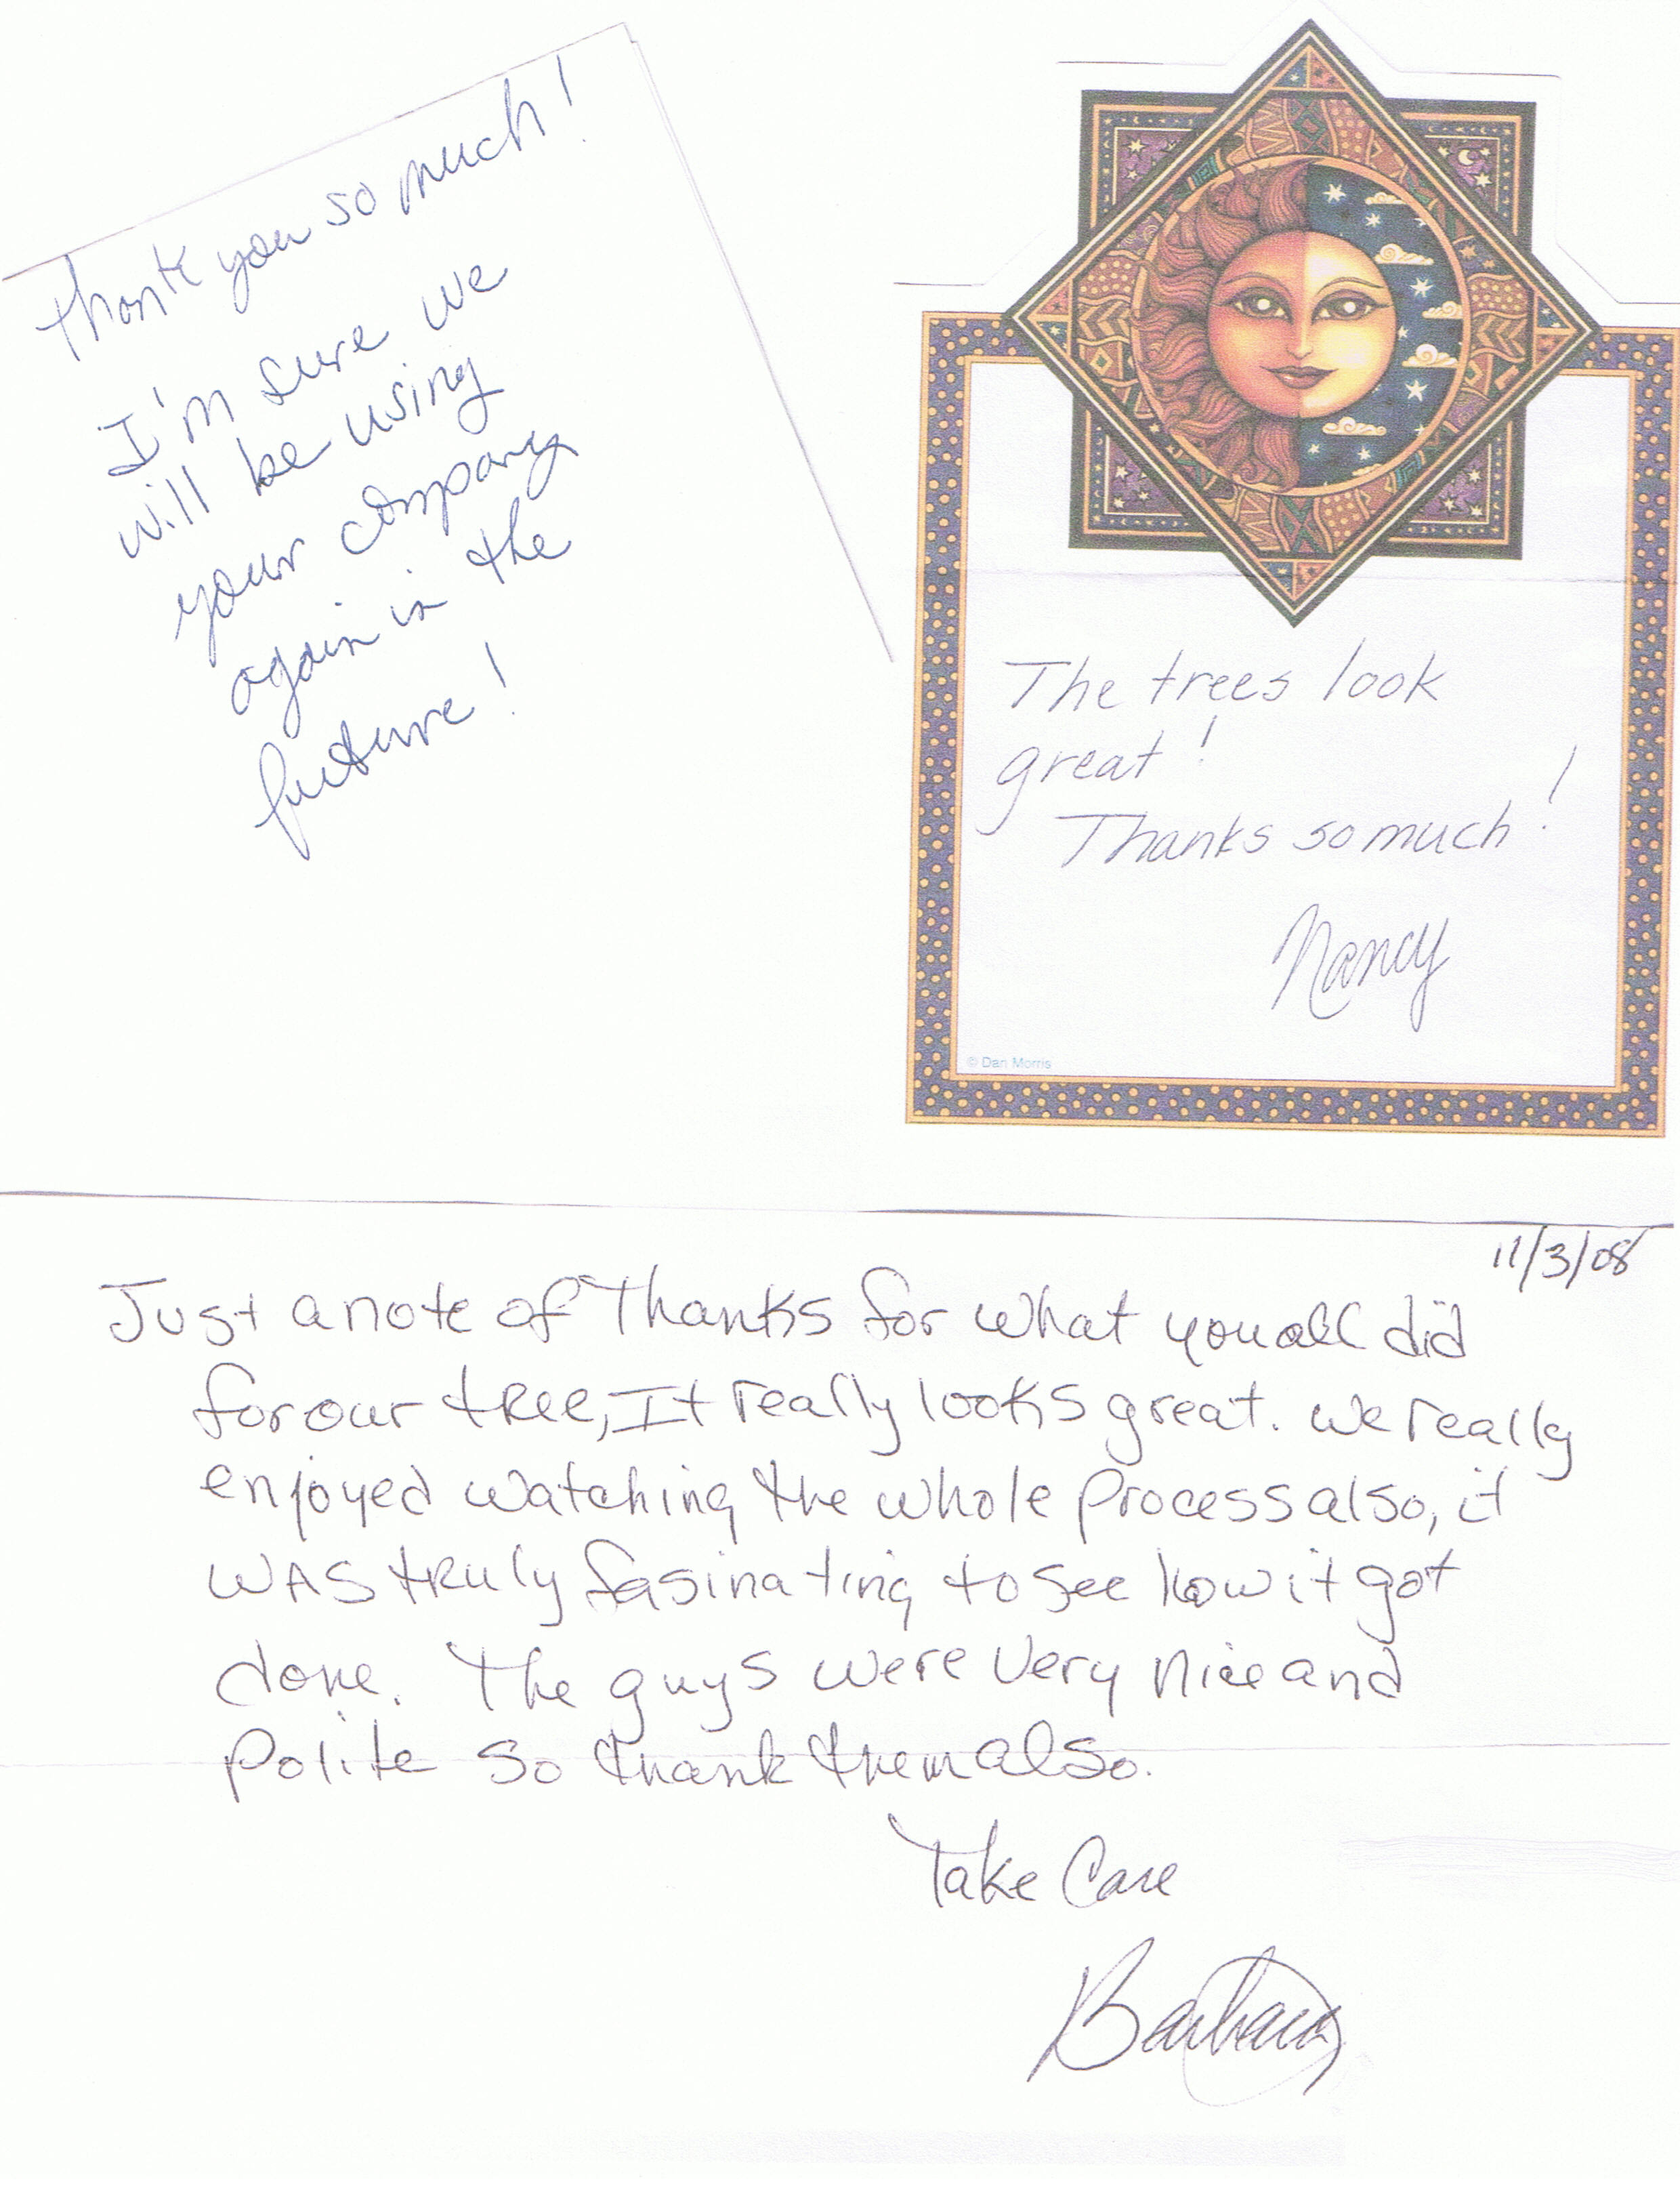 Thank you so much!
I'm sure we
will be using
your company
again in the
future!
The trees look
great!
Thanks so much!
Nancy
© Dan Morris
11/3/08
Just a note of Thanks for what you all did
for our tree, It really looks great. we really
enjoyed watching the whole process also, it
was truly fasinating to see how it got
done. The guys were very nice and
polite so thank them also.
Take Care
Barbara